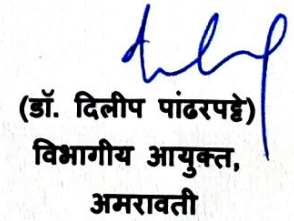 (डॉ. दिलीप पांढरपट्टे)
विभागीय आयुक्त,
अमरावती